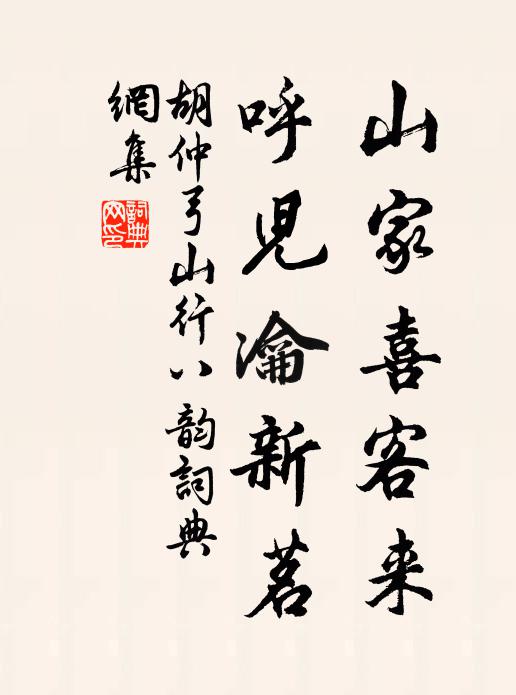 山家喜客来
呼児瀹新茗
胡仲弓山行八韵詞典
網集
詞典網印